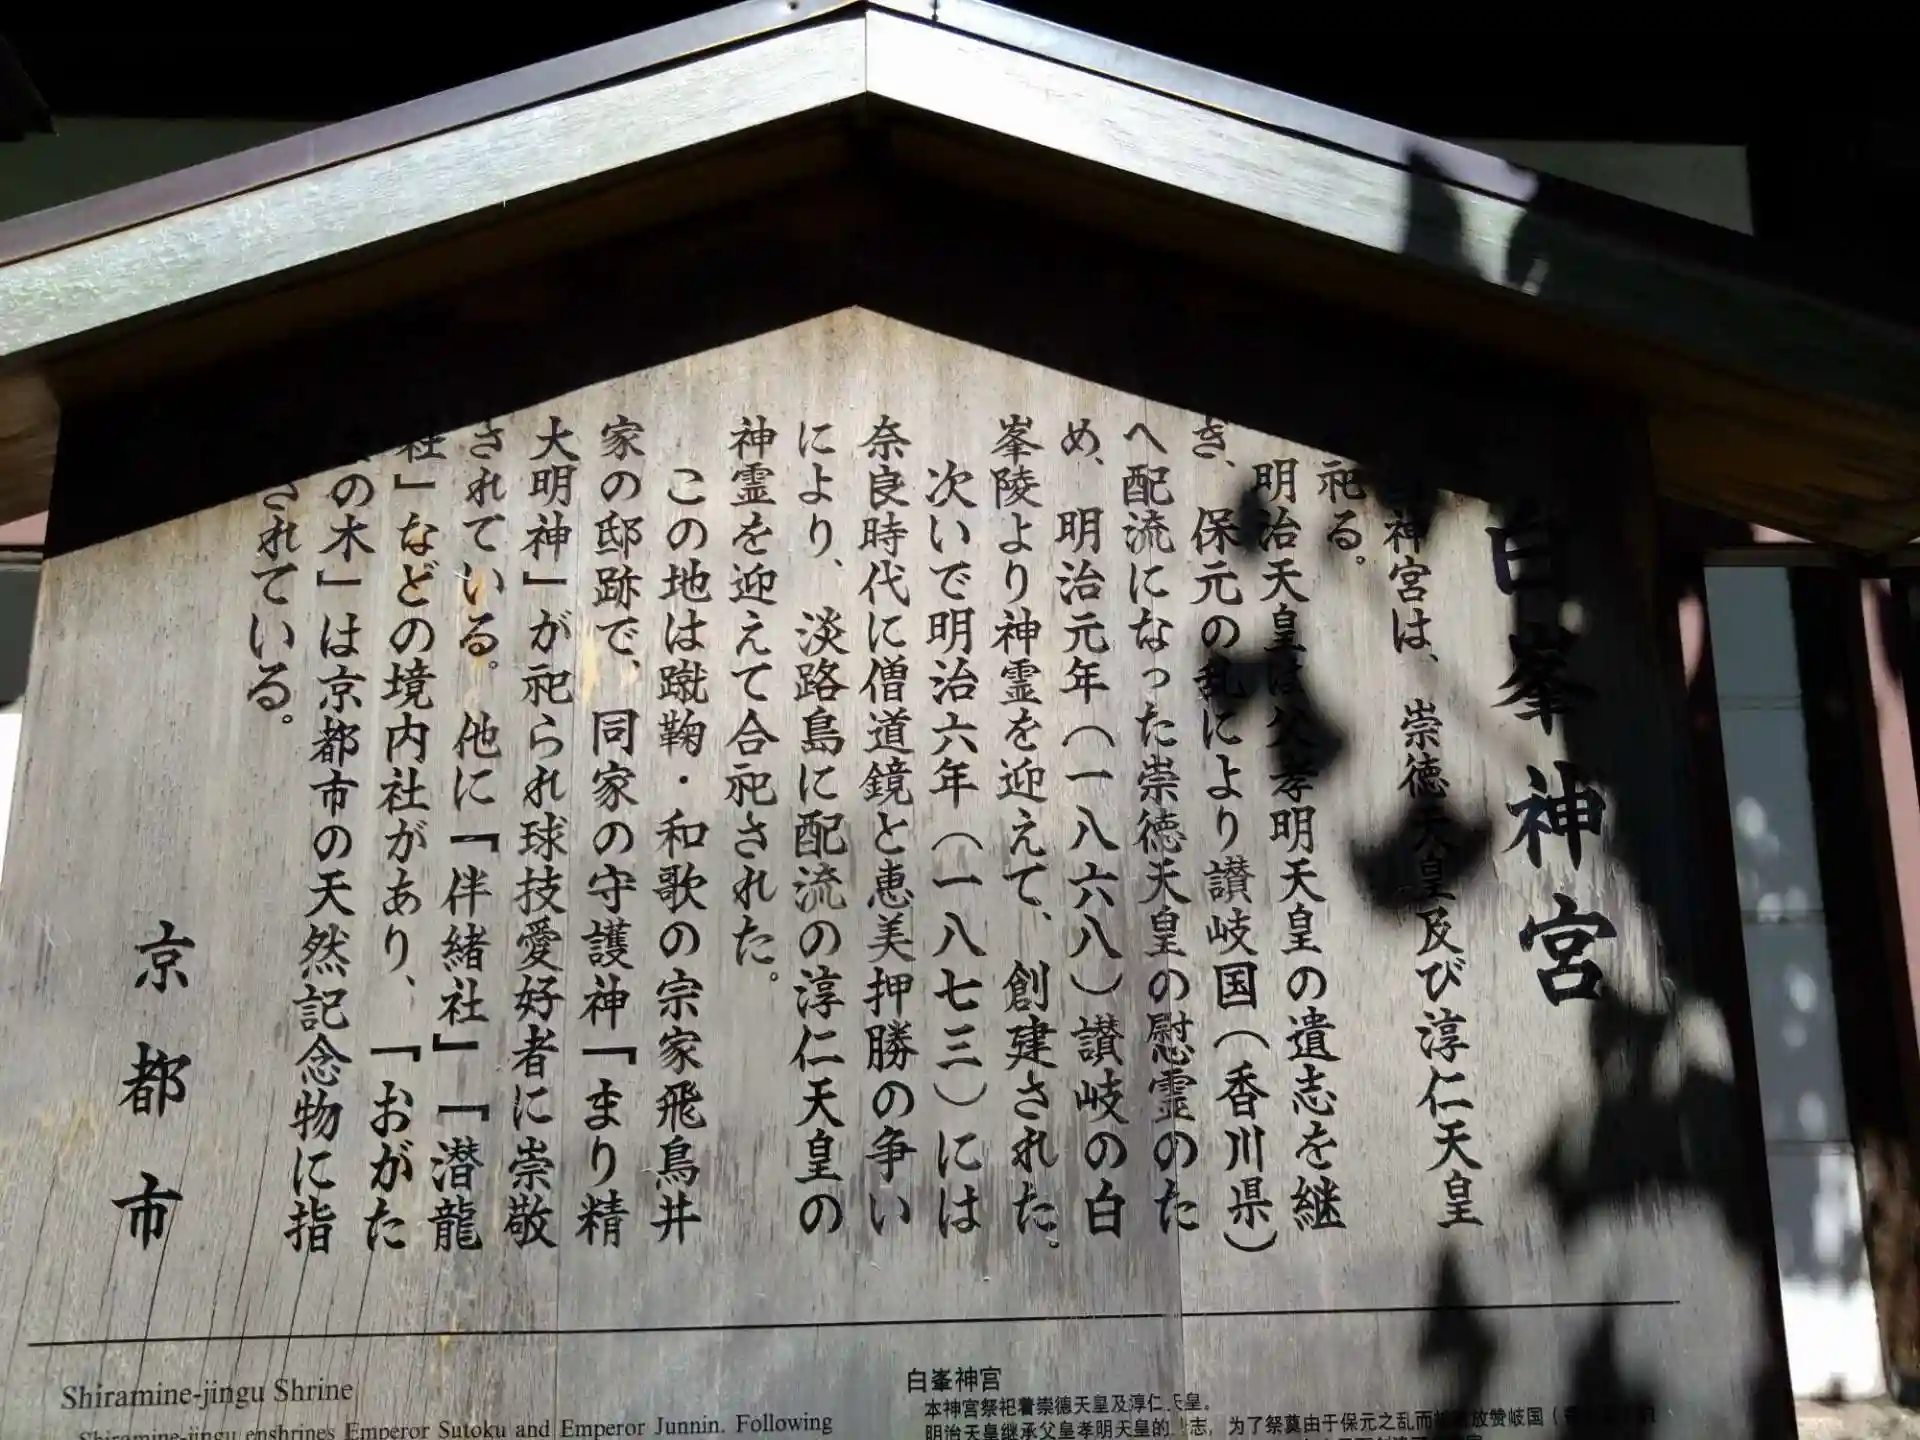 白峯神宮
神宮は、崇徳天皇及び淳仁天皇
祀る。
明治天皇は父孝明天皇の遺志を継
き、保元の乱により讃岐国（香川県）
へ配流になった崇徳天皇の慰霊のた
め、明治元年（一八六八）讃岐の白
峯陵より神霊を迎えて、創建された。
次いで明治六年（一八七三）には
奈良時代に僧道鏡と恵美押勝の争い
により、淡路島に配流の淳仁天皇の
神霊を迎えて合祀された。
この地は蹴鞠・和歌の宗家飛鳥井
家の邸跡で、同家の守護神「まり精
大明神」が祀られ球技愛好者に崇敬
されている。他に「伴緒社」「潜龍
社」などの境内社があり、「おがた
の木」は京都市の天然記念物に指
されている。
京都市
Shiramine-jingu Shrine
Shiramine-jingu enshrines Emperor Sutoku and Emperor Junnin. Following
白峯神宮
本神宫祭祀着崇德天皇及淳仁天皇。
明治天皇继承父皇孝明天皇的 志，为了祭奠由于保元之乱而 放赞岐国（